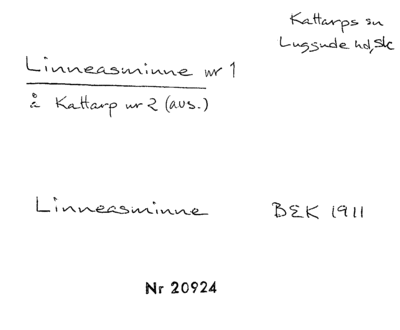 Kattarps sn
Luggude hd, Sk
Linneasminne nr 1
å Kattarp nr 2 (avs.)
Linneasminne BEK 1911
Nr 20924